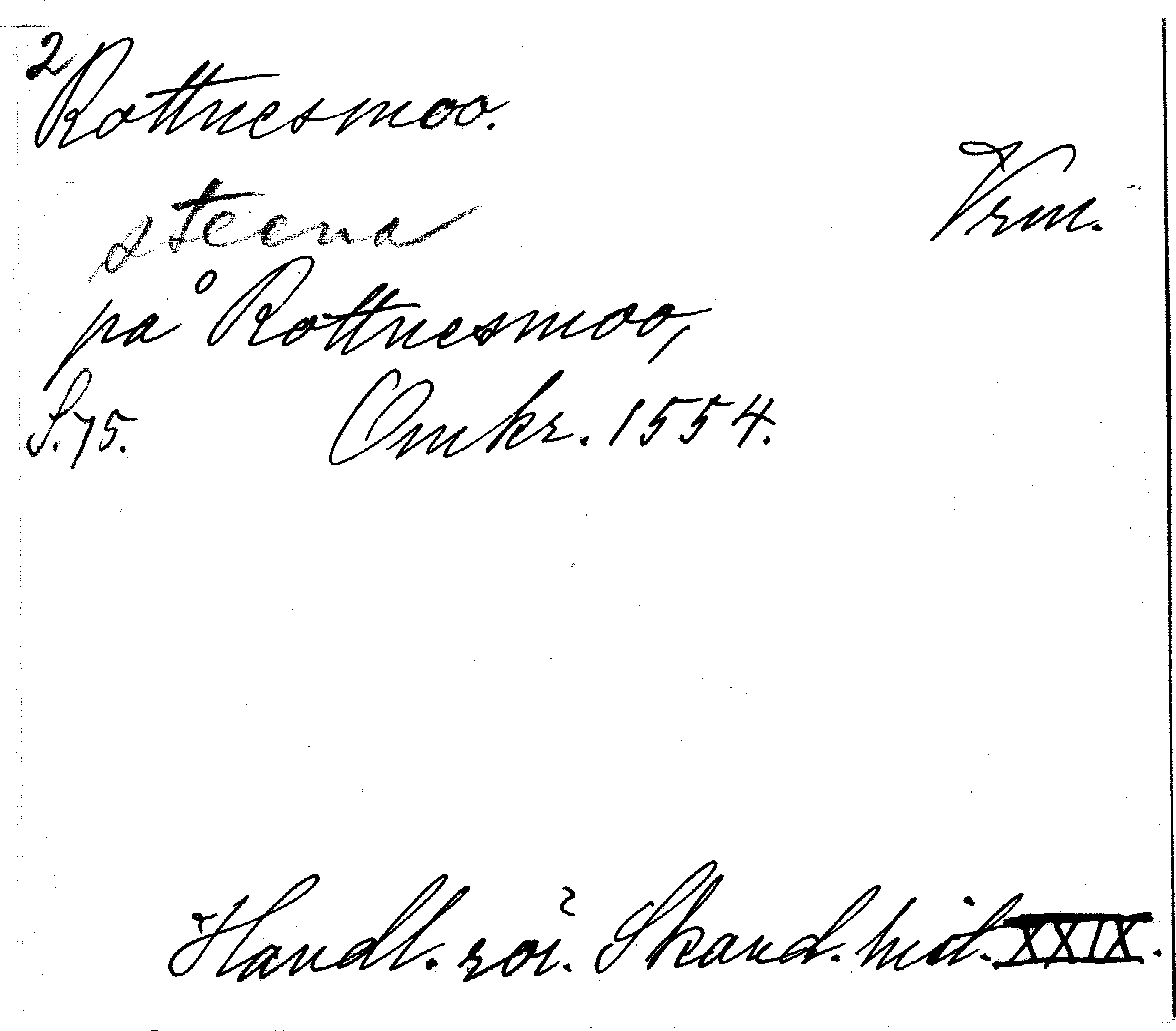 2 Rottnesmoo.
Vrm.
steena
på Rottnesmoo,
S. 75. Omkr. 1554.
Handl. rör. Skand. hist. XXIX.